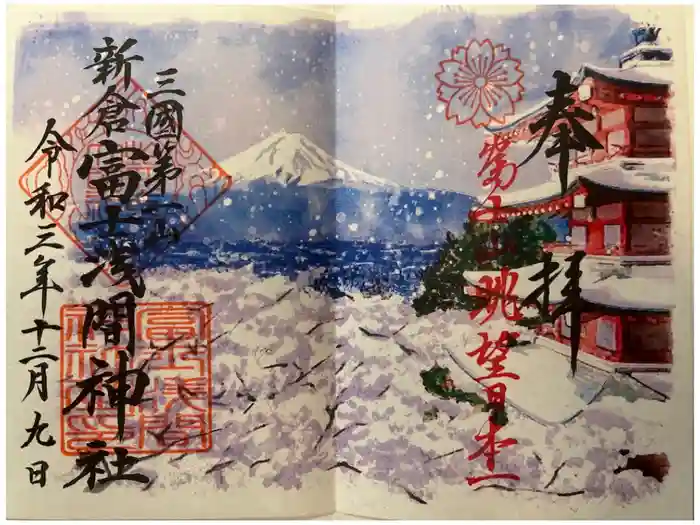 奉拝
富士山眺望日本一
三國第一山
新倉富士浅間神社
令和三年十二月九日